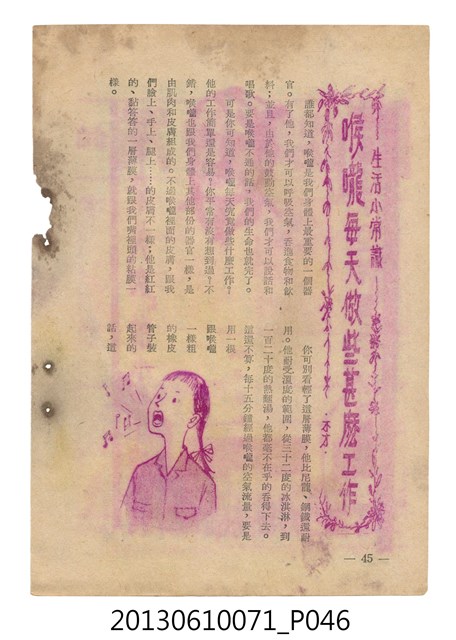 生活小常識
喉嚨每天做些甚麼工作
誰都知道,喉嚨是我們身體上最重要的一個器
官。有了他,我們才可以呼吸空氣,吞進食物和飲
料;並且,由於他的鼓動空氣,我們才可以說話和
唱歌。要是喉嚨不通的話,我們的生命也就完了。
可是你可知道,喉嚨每天究竟做些什麼工作?
他的工作簡單還是容易?你平常有沒有想到過?不
錯,喉嚨也跟我們身體上其他部份的器官一樣,是
由肌肉和皮膚組成的。不過喉嚨裡面的皮膚,跟我
們臉上、手上、腿上……的皮膚不一樣;他是紅紅
的、黏答答的一層薄膜,就跟我們嘴裡頭的粘膜一
樣。
你可別看輕了這層薄膜,他比尼龍、鋼鐵還耐
用。他耐受溫度的範圍,從三十二度的冰淇淋,到
一百二十度的熱湯,他都毫不在乎的吞得下去。
這還不算,每十五分鐘經過喉嚨的空氣流量,要是
用一根
跟喉嚨
一樣粗
的橡皮
管子裝
起來的
話,這
— 45 —
20130610071_P046